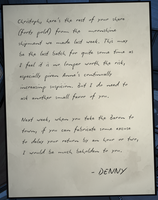 Christoph, here's the rest of your share
(forty gold) from the
shipment we made last week. This may
be the last batch for quite some time as
I feel it is no longer worth the risk,
especially given Anna's continually
increasing suspicion, but I do need to
ask another small favor of you.
Next week, when you take the
to
town, if you can fabricate some excuse
to delay your return by an hour or two,
I would be much beholden to you.
- DENNY